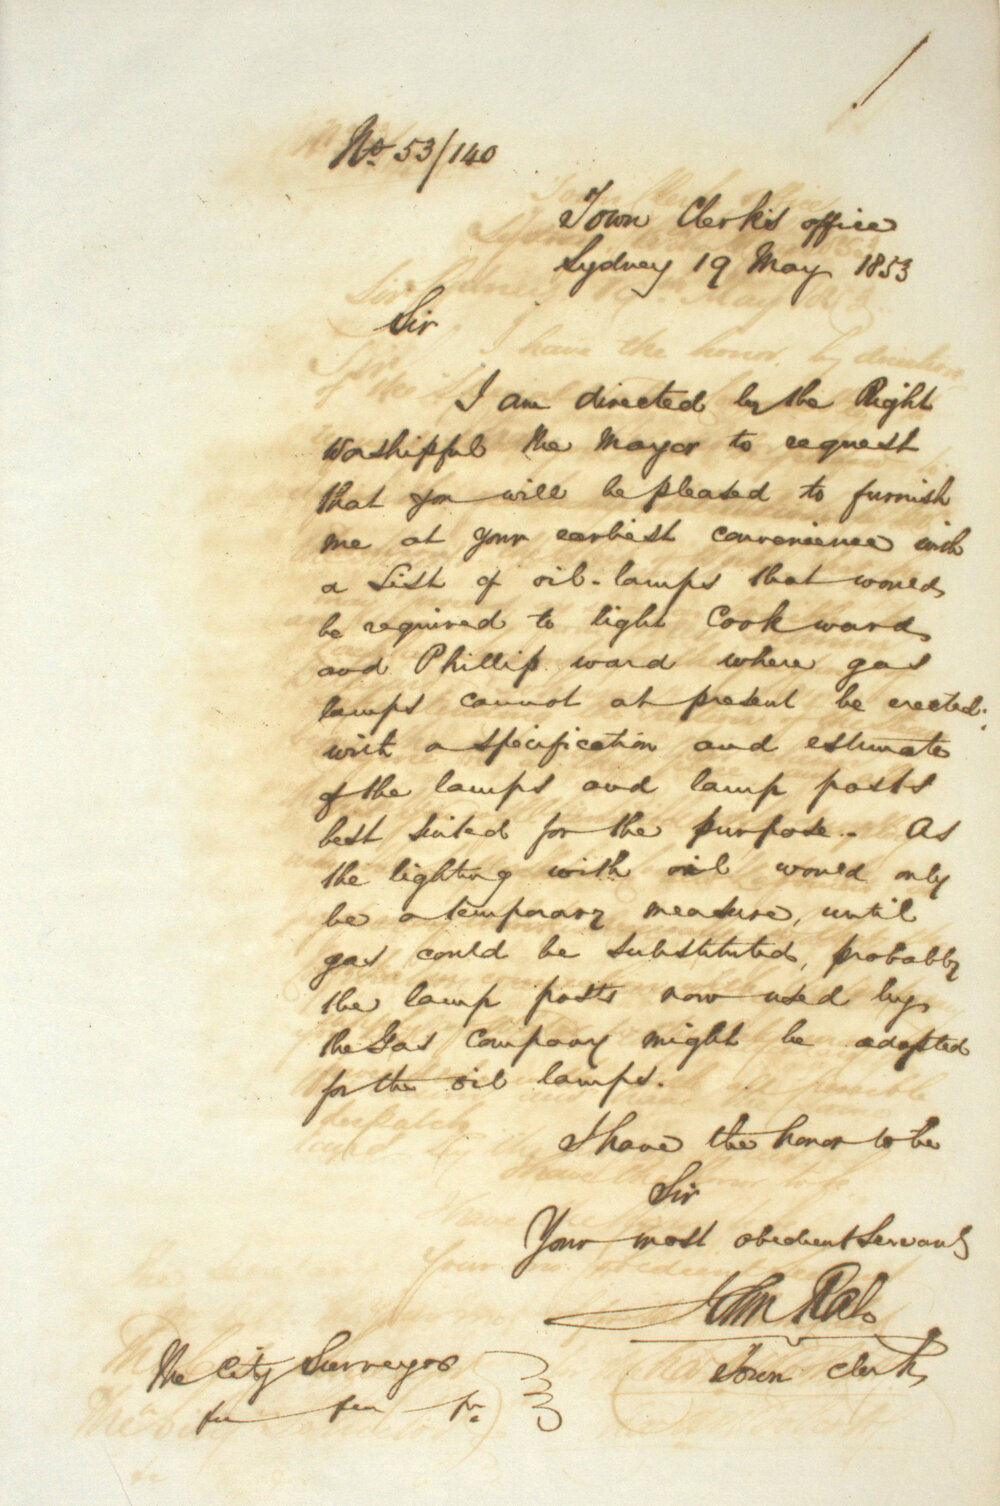 No. 53/140
Town Clerk's office
Sydney 19 May 1853
Sir
I am directed by the Right
Worshipful the Mayor to request
that you will be pleased to furnish
me at your earliest convenience with
a List of oil-lamps that would
be required to light Cook ward
and Phillip ward where gas
lamps cannot at present be erected;
with a specification and estimate
of the lamps and lamp posts
best suited for the purpose. As
the lighting with oil would only
be a temporary measure, until
gas could be substituted, probably
the lamp posts now used by
the Gas Company might be adapted
for the oil lamps.
I have the honor to be
Sir
Your most obedient Servant
John Rae
Town Clerk
The City Surveyor